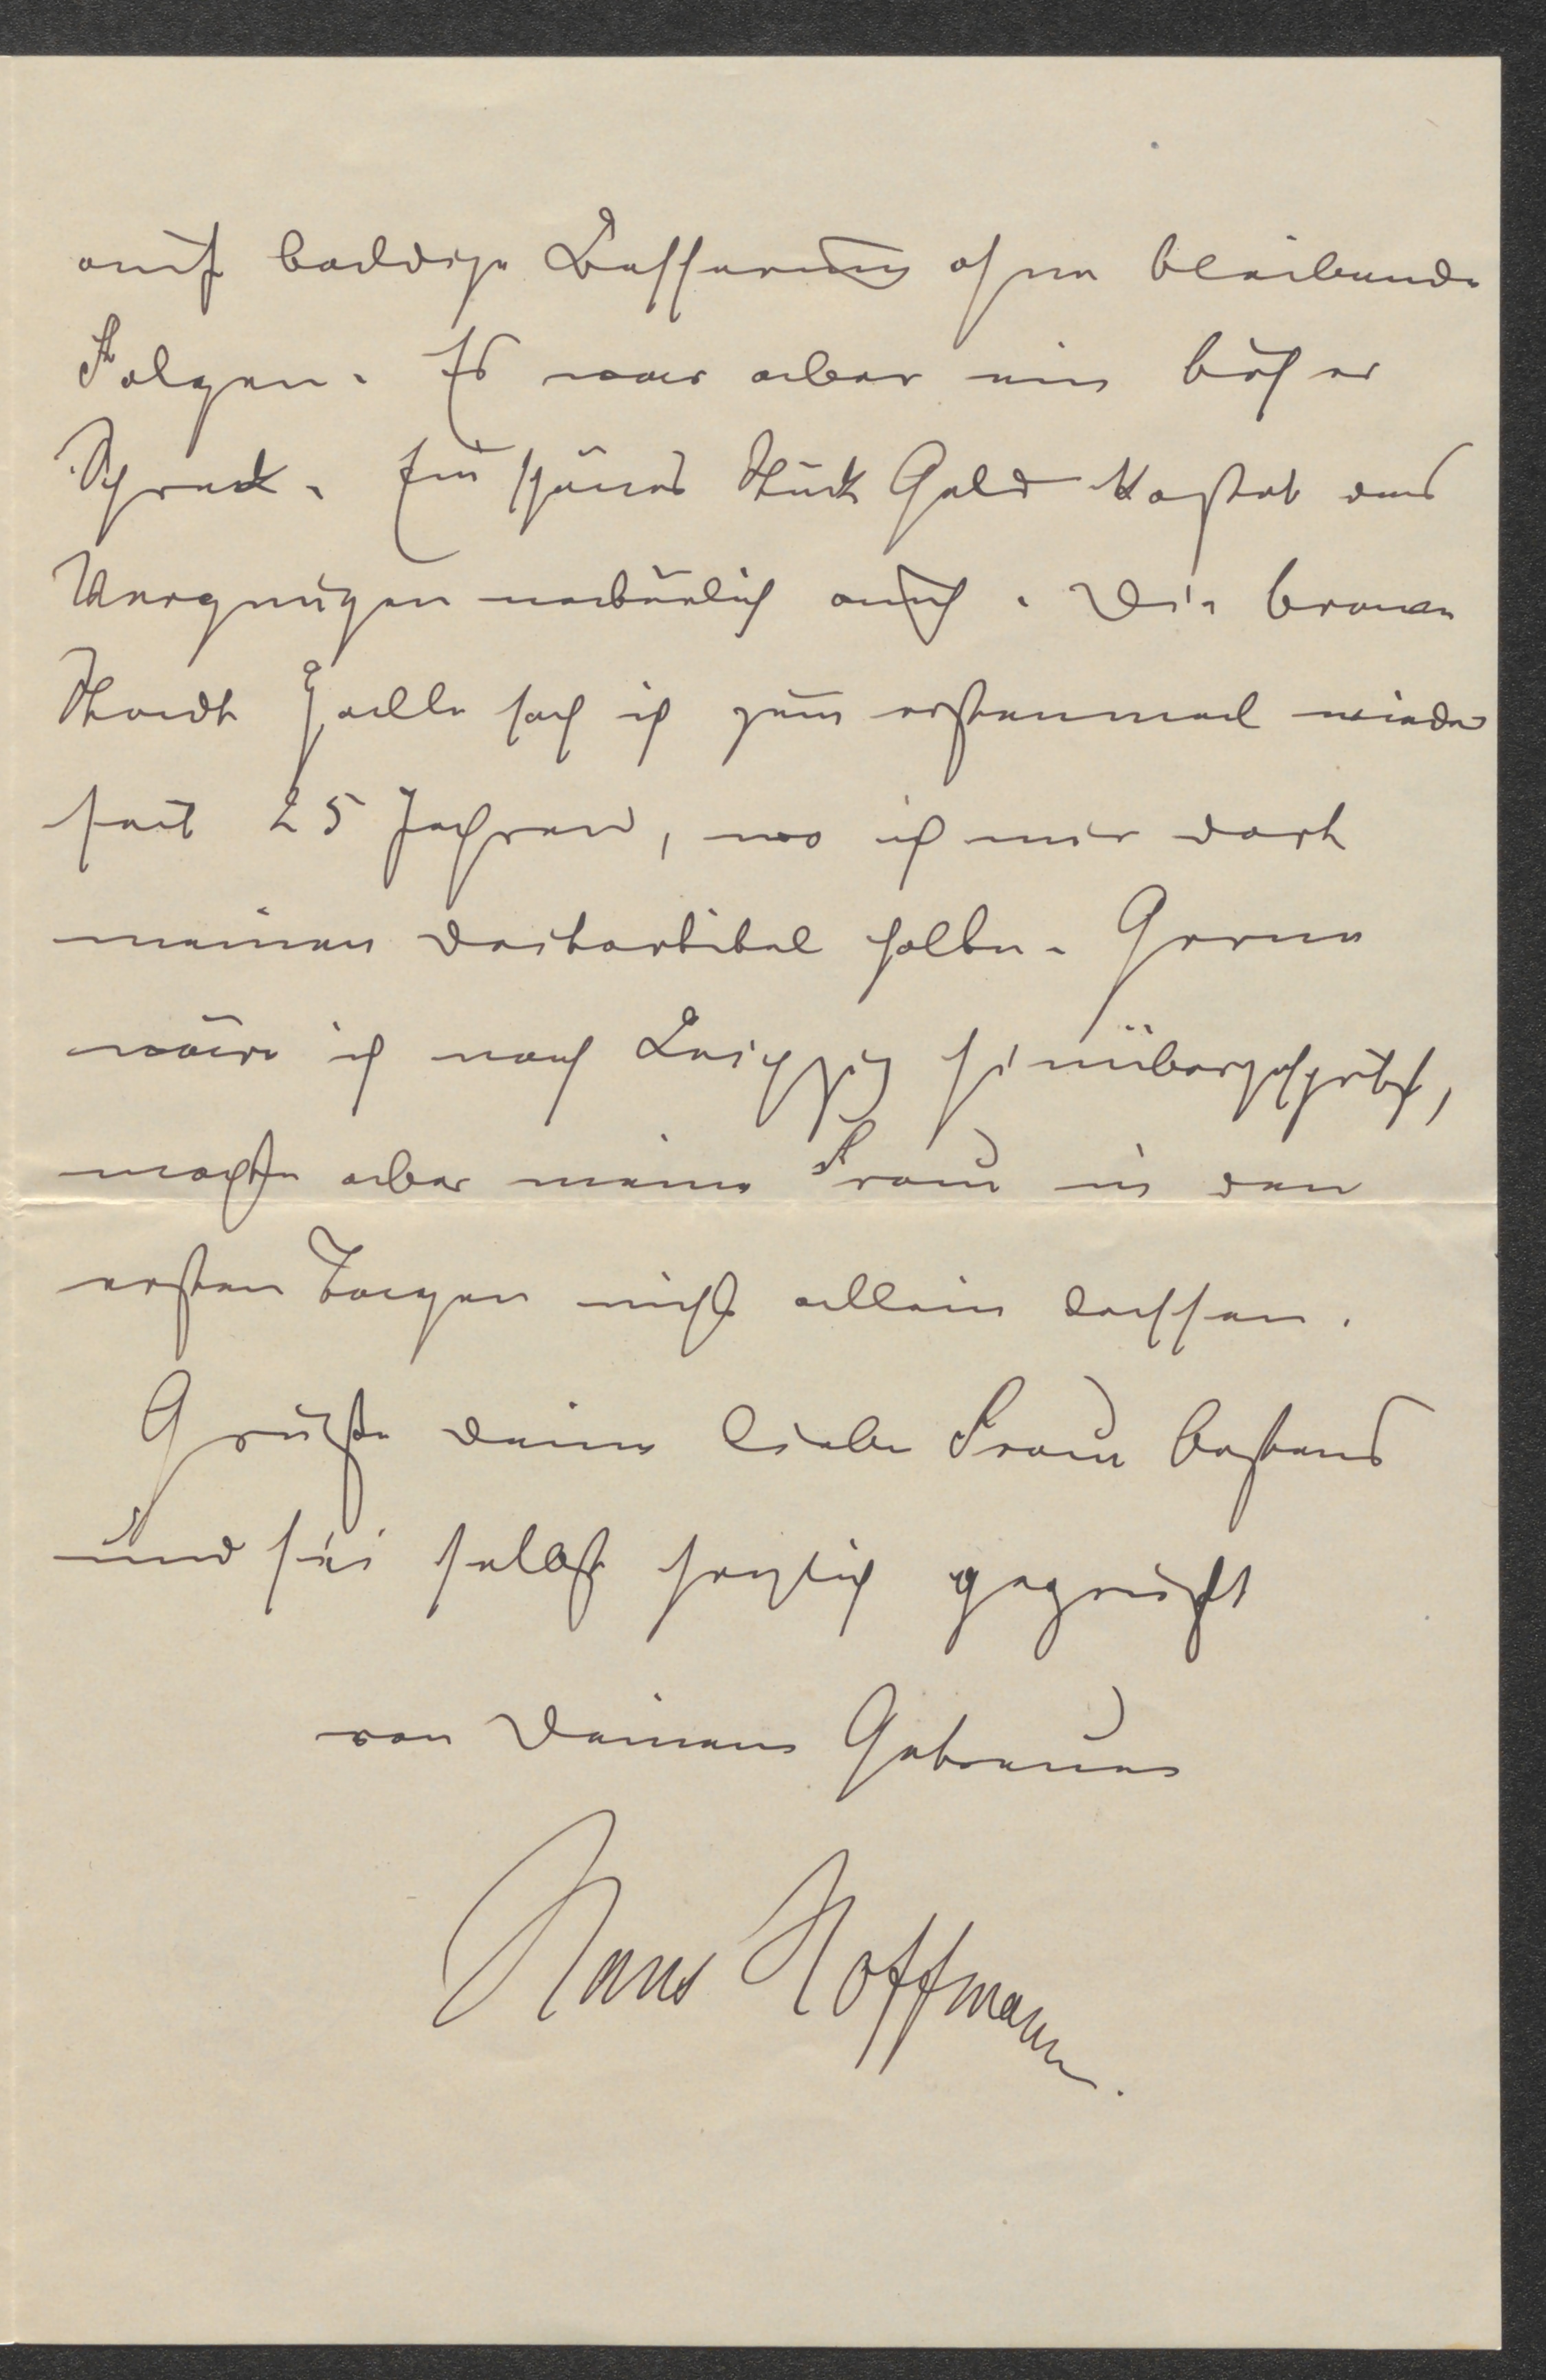 auf baldige Besserung ohne bleibende
Folgen. Es war aber ein böser
Schreck. Ein schönes Stück Geld kostet das
Vergnügen natürlich auch. Die brave
Stadt Halle sah ich zum erstenmal wieder
seit 25 Jahren, wo ich mir dort
meinen Doctortitel holte. Gerne
wäre ich nach Leipzig hinübergespritzt,
mochte aber meine Frau in den
ersten Tagen nicht allein lassen.
Grüße deine liebe Frau bestens
und sei selbst herzlich gegrüßt
von Deinem Getreuen
Hans Hoffmann.